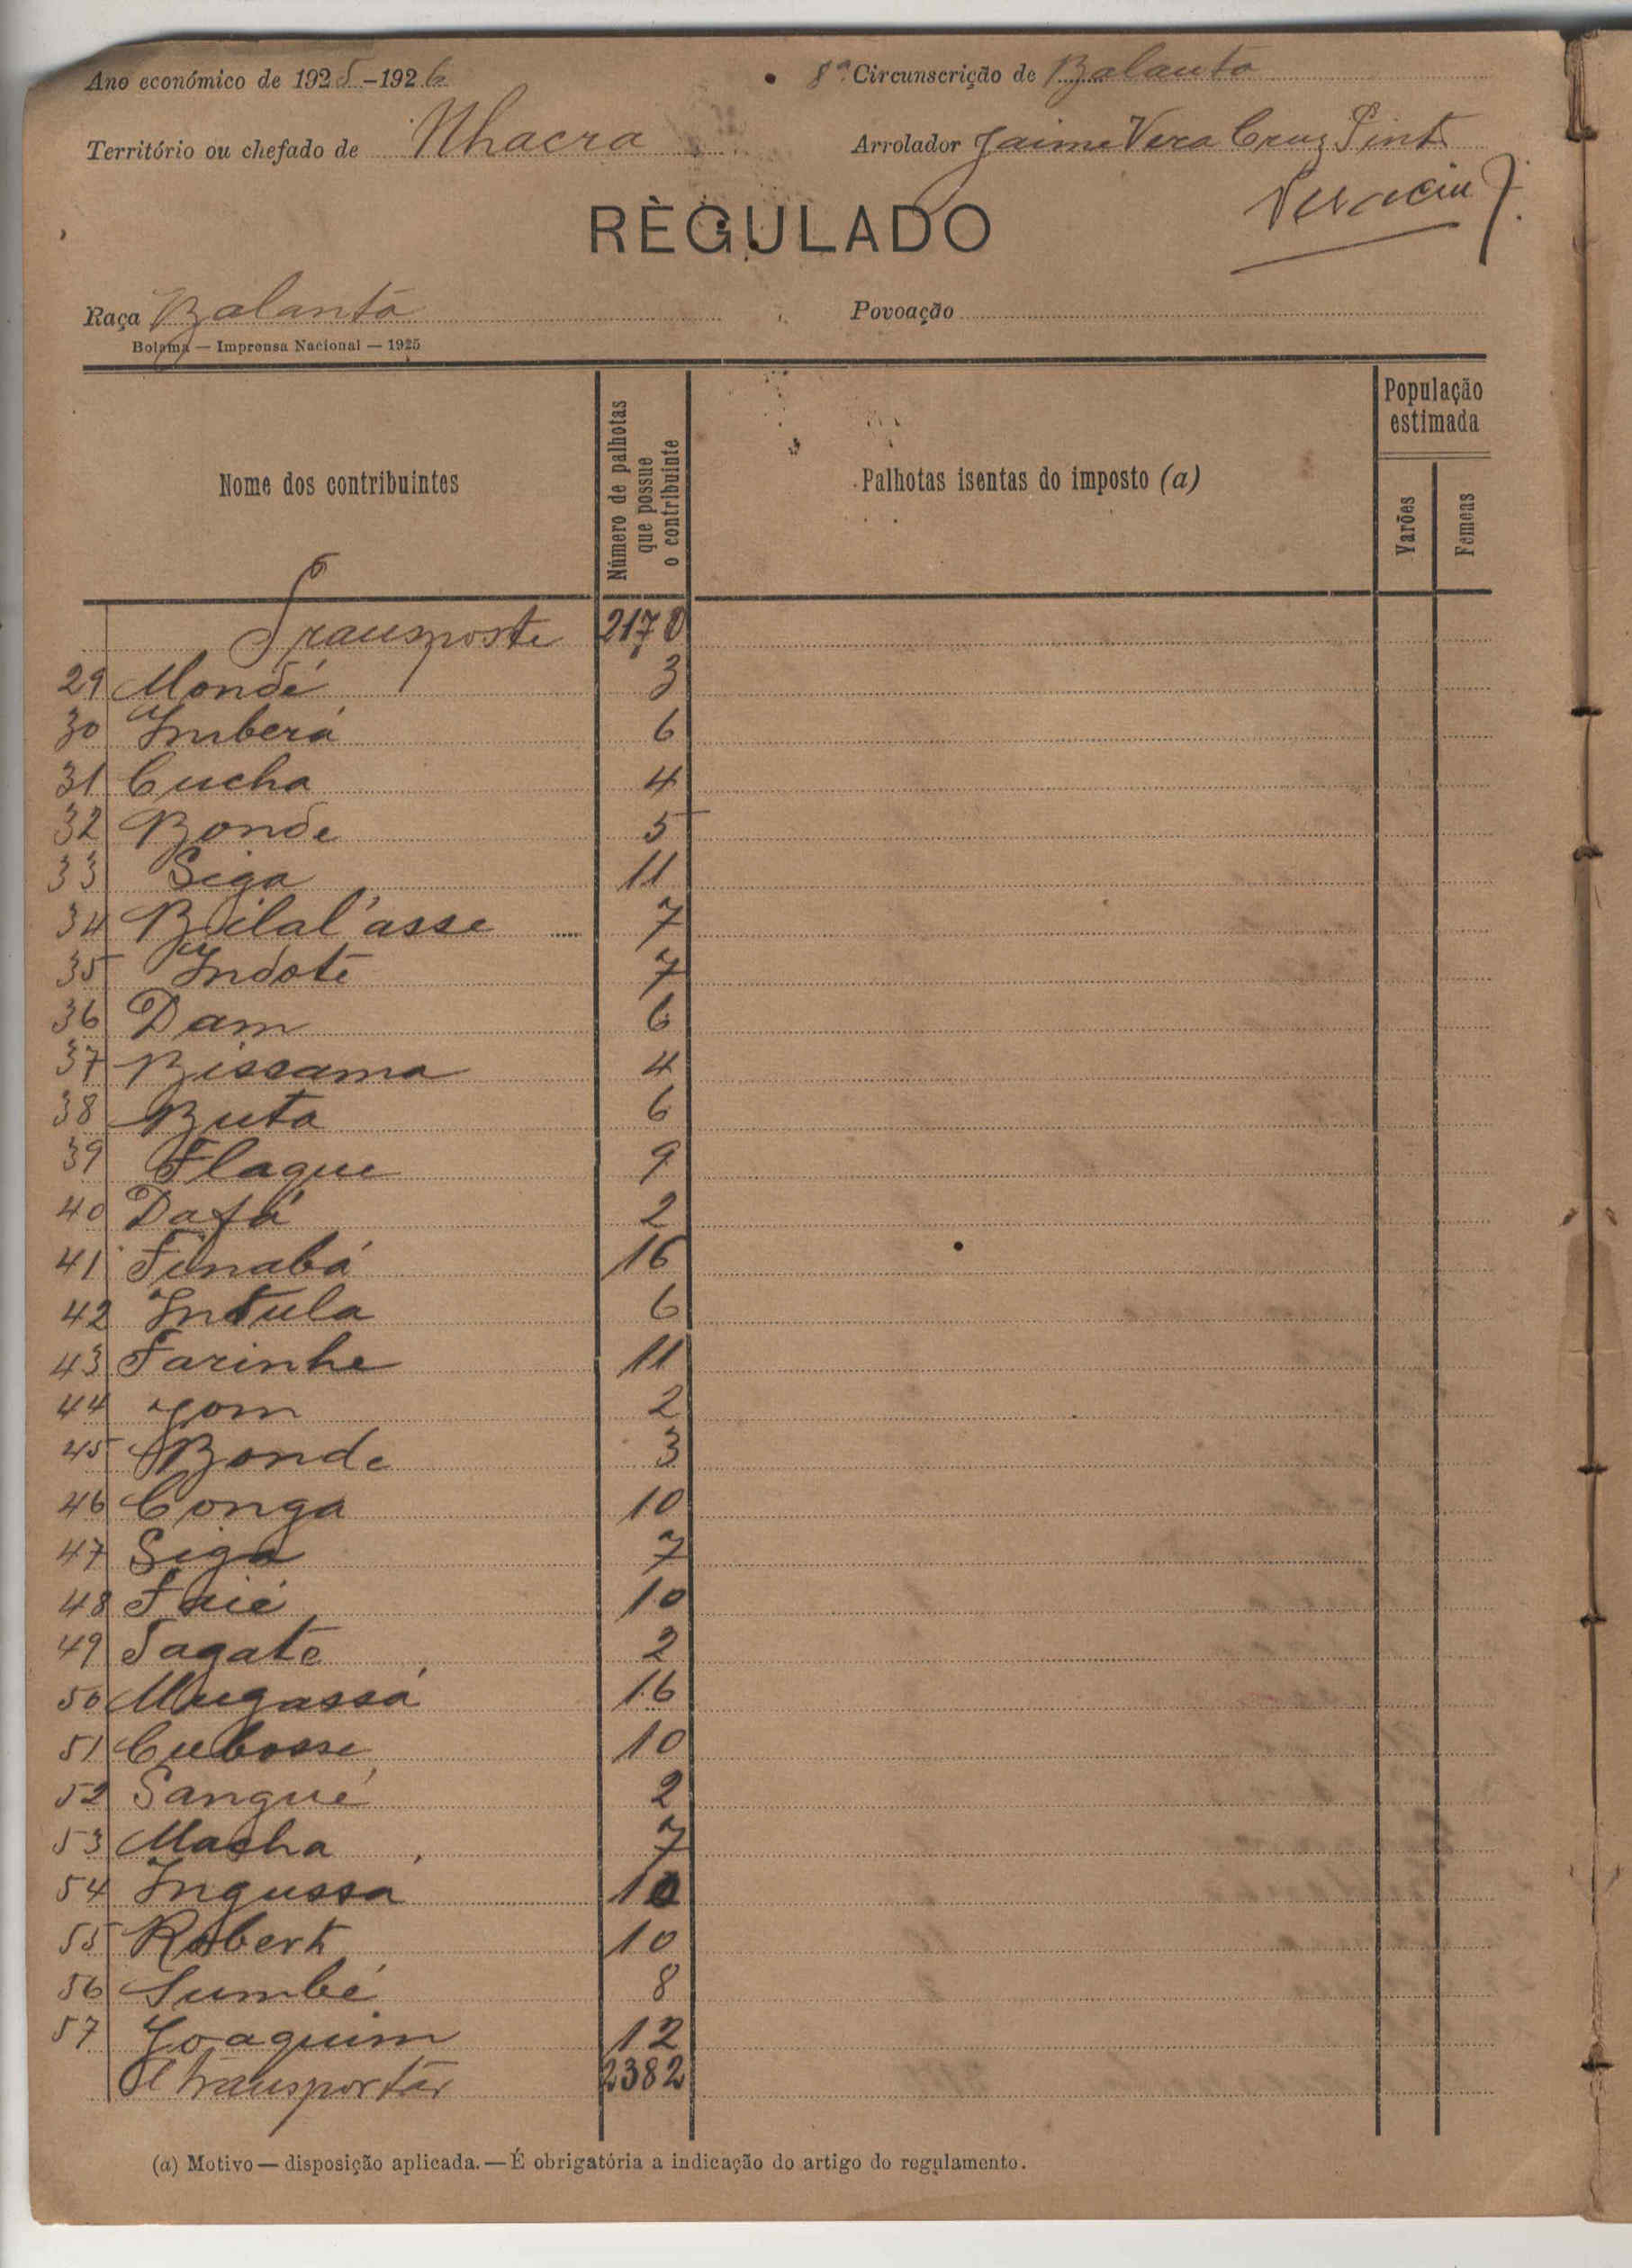 Ano económico de 1925-1926 8ª Circunscrição de Balanta
Território ou chefado de Nhacra Arrolador Jaime Vera Cruz Pinto
REGULADO
Raça Balanta Povoação
Bolama — Imprensa Nacional — 1925
Nome dos contribuintes Número de palhotas que possue o contribuinte Palhotas isentas do imposto (a) População estimada
Varões Femeas
Transporte 2170
29 Mondé 3
30 Imberá 6
31 Cucha 4
32 Bonde 5
33 Siga 11
34 Bilal'asse 7
35 Indote 7
36 Dam 6
37 Bissama 4
38 Buta 6
39 Flaque 9
40 Dafá 2
41 Finabá 16
42 Intula 6
43 Farinhe 11
44 Yom 2
45 Bonde 3
46 Conga 10
47 Siga 7
48 Faié 10
49 Tagate 2
50 Mugassá 16
51 Cubosse 10
52 Sangué 2
53 Macha 7
54 Ingussá 10
55 Robert 10
56 Sumbé 8
57 Joaquim 12
A transportar 2382
(a) Motivo — disposição aplicada. — É obrigatória a indicação do artigo do regulamento.